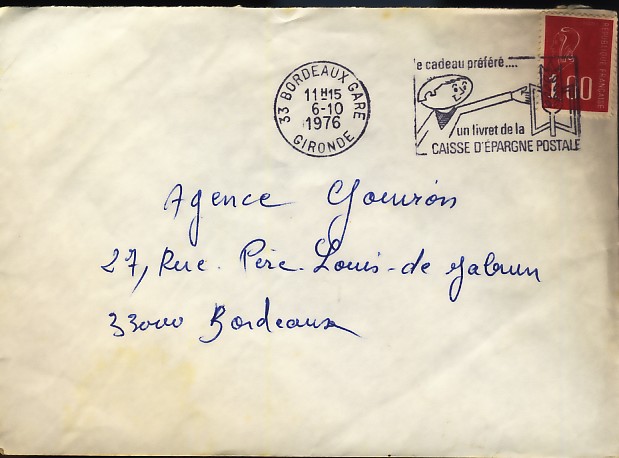 e cadeau préféré....
33 BORDEAUX GARE
11H15
6-10
1976
GIRONDE
un livret de la
CAISSE D'ÉPARGNE POSTALE
REPUBLIQUE FRANCAISE
Agence
27, Rue Père Louis-de Jabrun
33000 Bordeaux